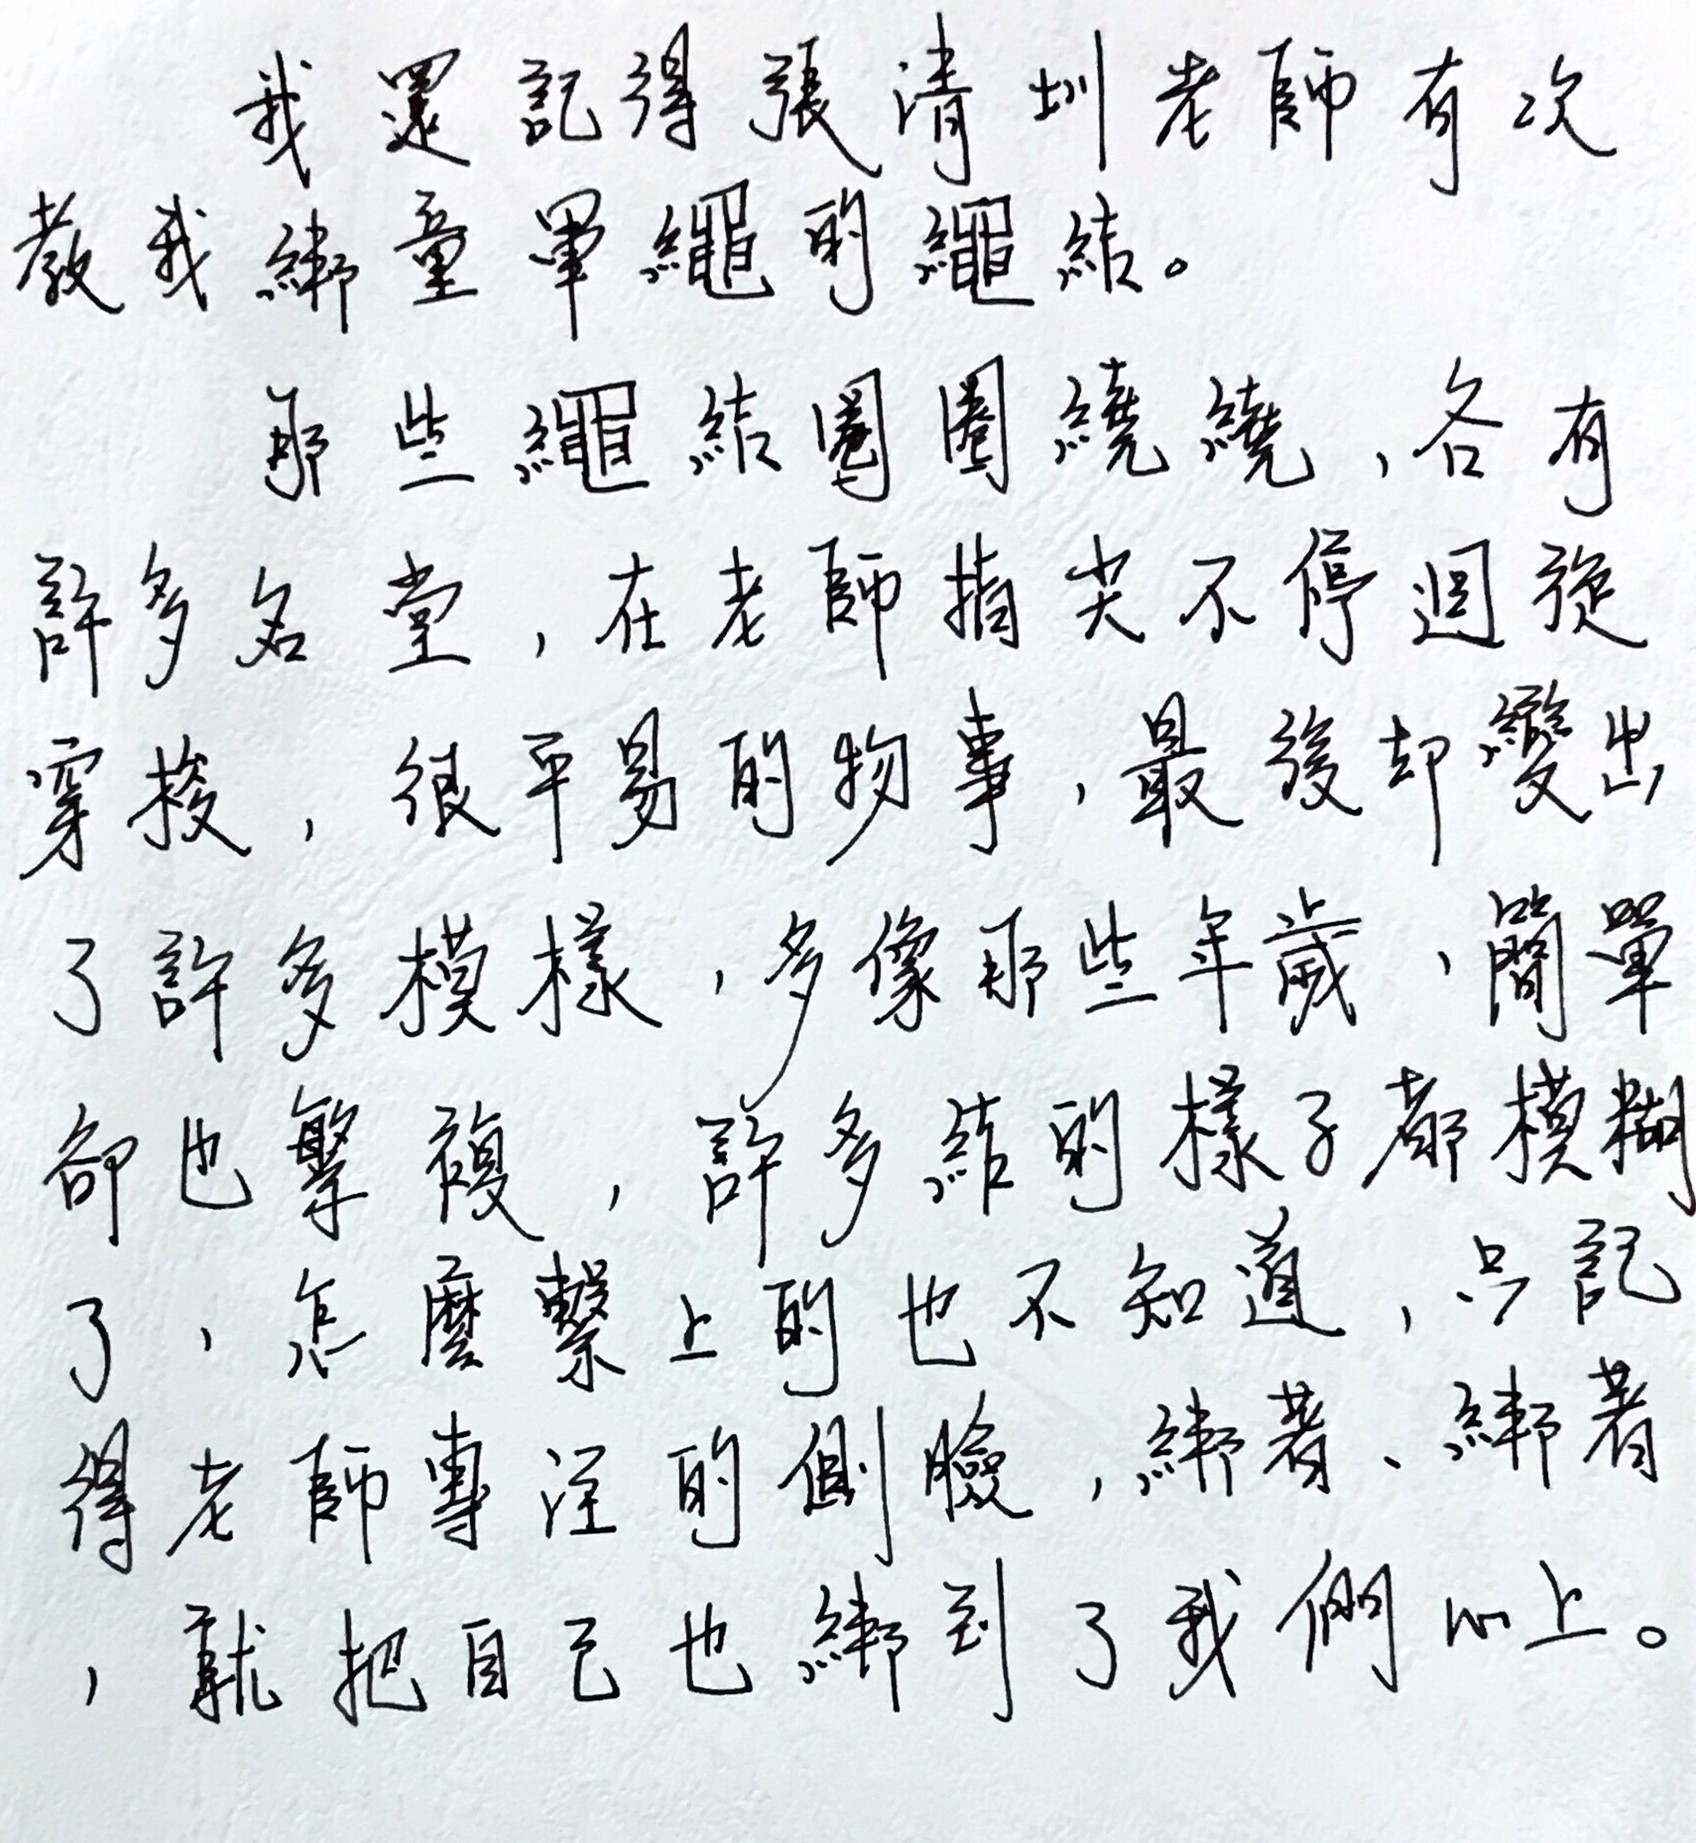 我還記得張清圳老師有次
教我綁童軍繩的繩結。
那些繩結圈圈繞繞，各有
許多名堂，在老師指尖不停迴旋
穿梭，很平易的物事，最後却變出
了許多模樣，多像那些年歲，簡單
卻也繁複，許多結的樣子都模糊
了，怎麼繫上的也不知道，只記
得老師專注的側臉，綁著、綁著
，就把自己也綁到了我們心上。